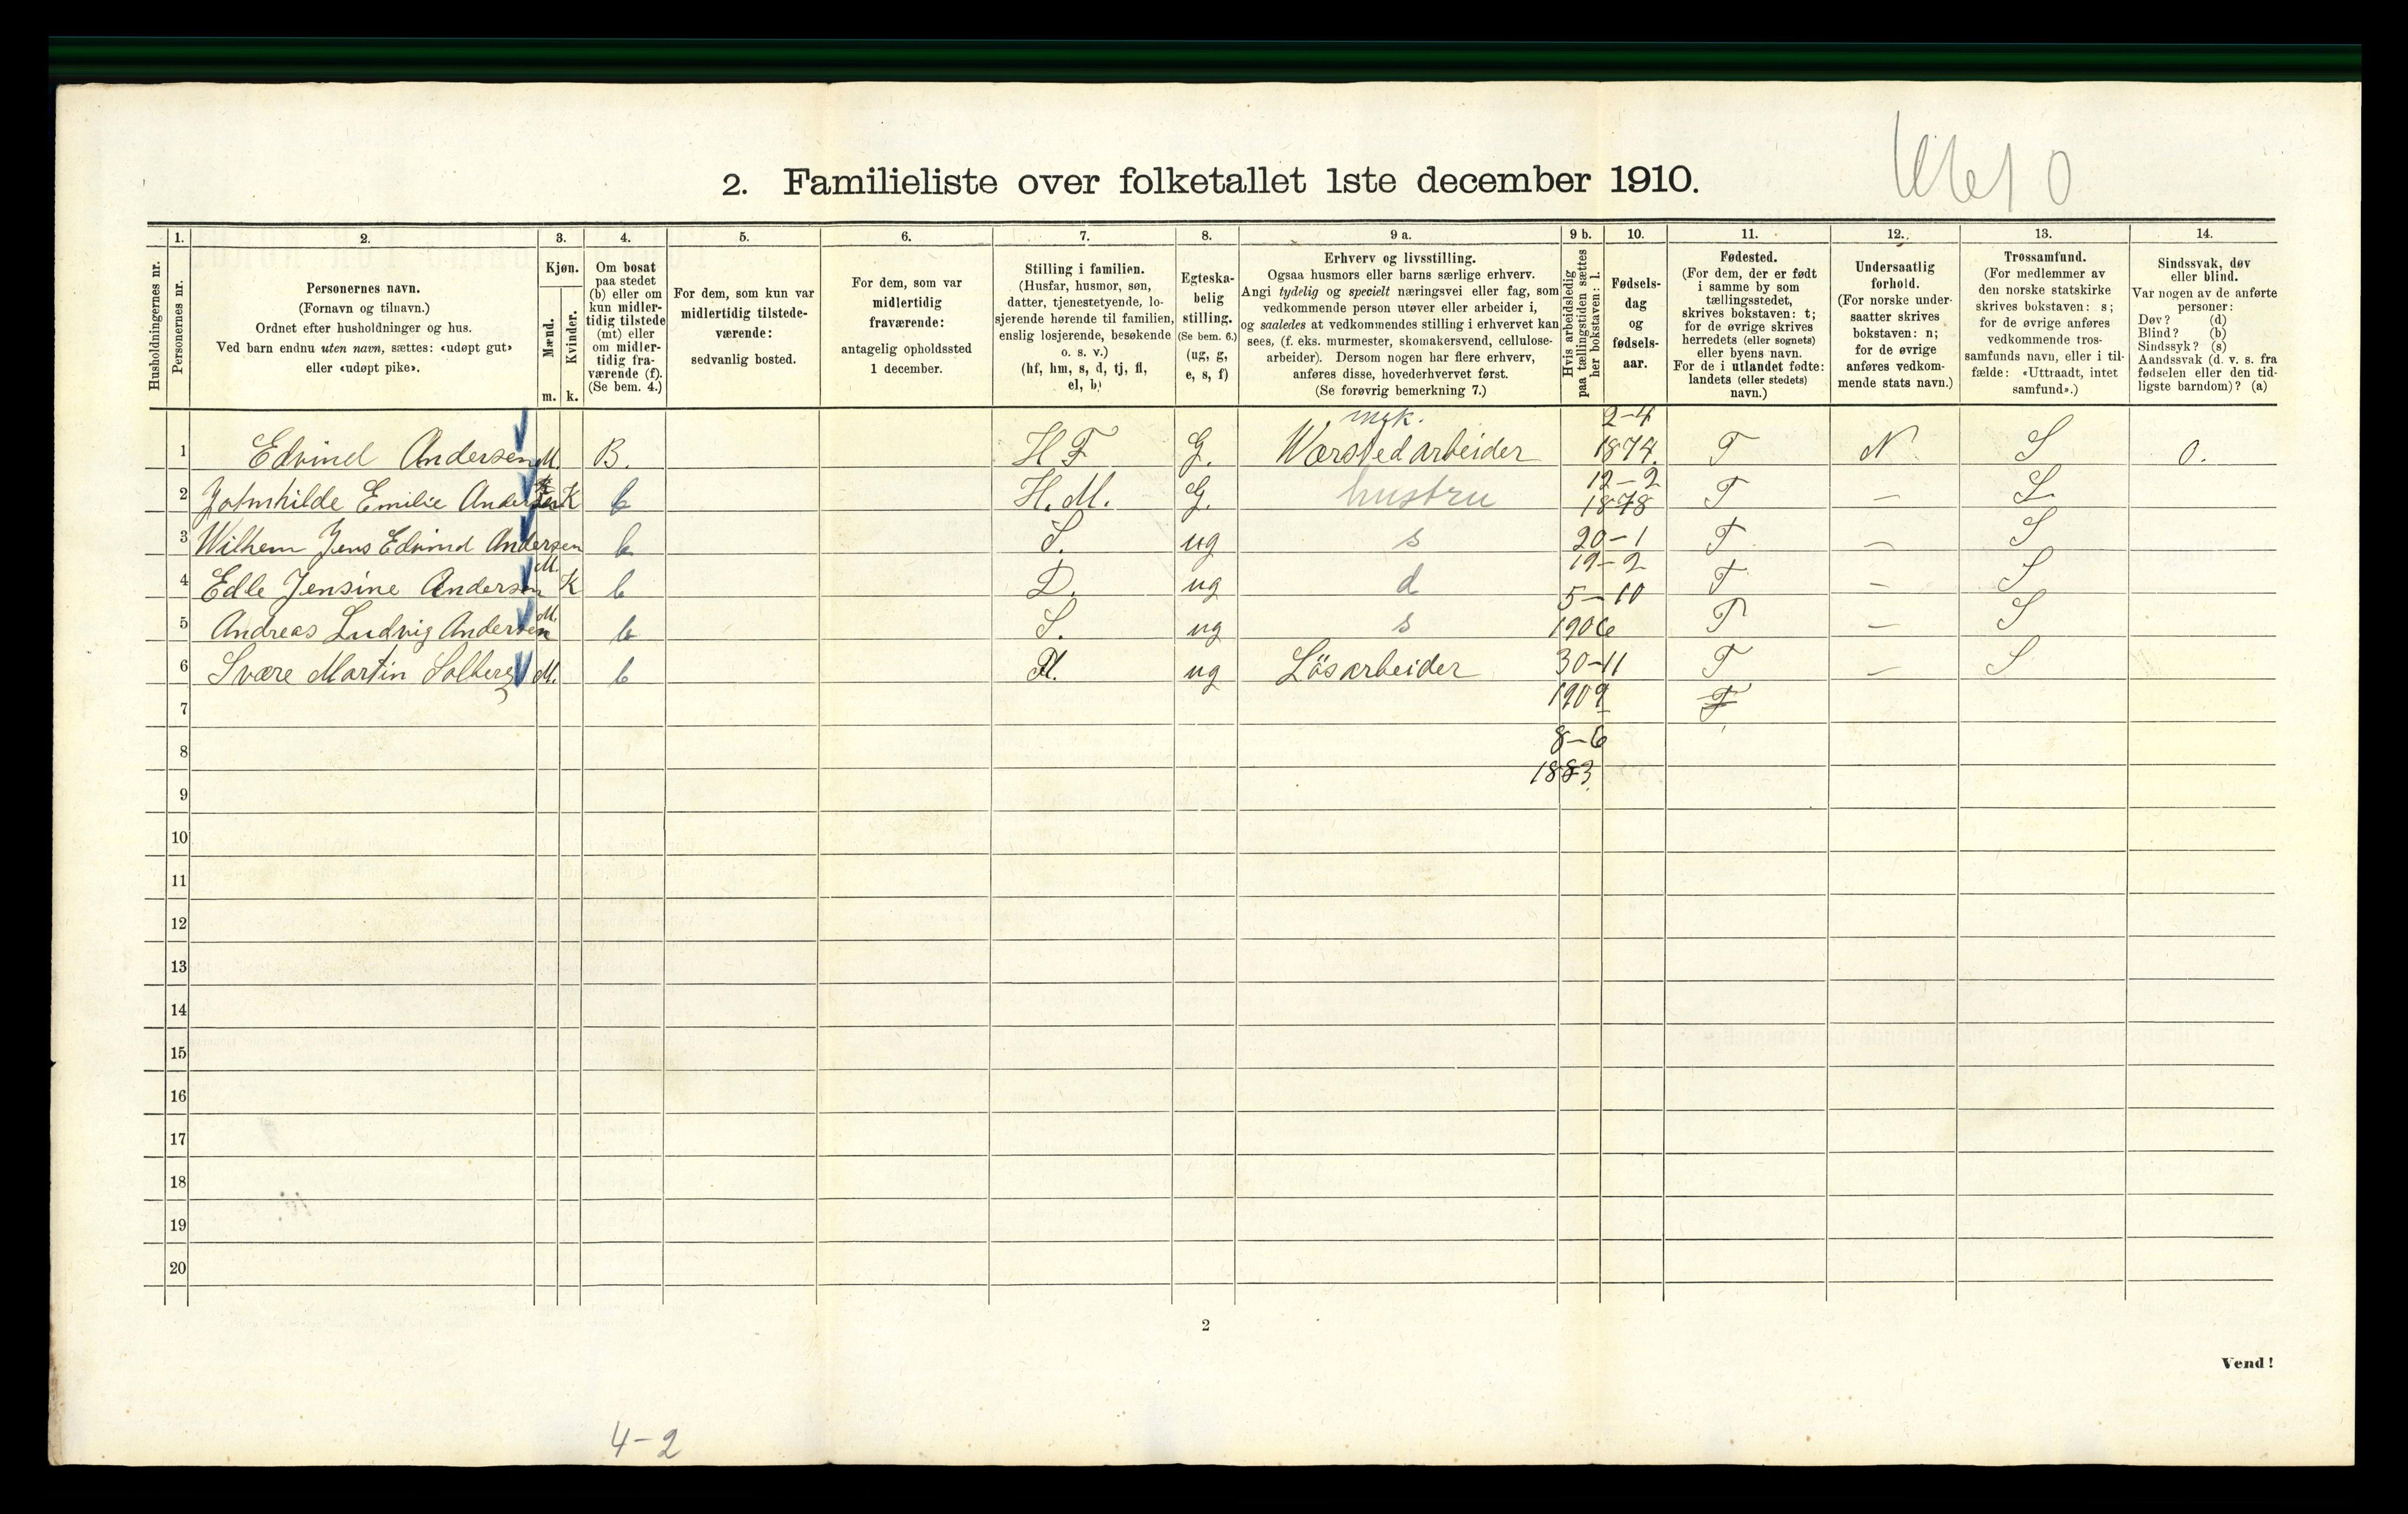 2. Familieliste over folketallet 1ste december 1910.
0
Husholdningernes nr.
1.
Personernes nr.
2.
Personernes navn.
(Fornavn og tilnavn.)
Ordnet efter husholdninger og hus.
Ved barn endnu uten navn, sættes: «udøpt gut»
eller «udøpt pike».
3.
Kjøn.
Mænd.
Kvinder.
m. k.
4.
Om bosat
paa stedet
(b) eller om
kun midler-
tidig tilstede
(mt) eller
om midler-
tidig fra-
værende (f).
(Se bem. 4.)
5.
For dem, som kun var
midlertidig tilstede-
værende:
sedvanlig bosted.
6.
For dem, som var
midlertidig
fraværende:
antagelig opholdssted
1 december.
7.
Stilling i familien.
(Husfar, husmor, søn,
datter, tjenestetyende, lo-
sjerende hørende til familien,
enslig losjerende, besøkende
o. s. v.)
(hf, hm, s, d, tj, fl,
el, b)
8.
Egteska-
belig
stilling.
(Se bem. 6.)
(ug, g,
e, s, f)
9 a.
Erhverv og livsstilling.
Ogsaa husmors eller barns særlige erhverv.
Angi tydelig og specielt næringsvei eller fag, som
vedkommende person utøver eller arbeider i,
og saaledes at vedkommendes stilling i erhvervet kan
sees, (f. eks. murmester, skomakersvend, cellulose-
arbeider). Dersom nogen har flere erhverv,
anføres disse, hovederhvervet først.
(Se forøvrig bemerkning 7.)
9 b.
Hvis arbeidsledig
paa tællingstiden sættes
her bokstaven: l.
10.
Fødsels-
dag
og
fødsels-
aar.
11.
Fødested.
(For dem, der er født
i samme by som
tællingsstedet,
skrives bokstaven: t;
for de øvrige skrives
herredets (eller sognets)
eller byens navn.
For de i utlandet fødte:
landets (eller stedets)
navn.)
12.
Undersaatlig
forhold.
(For norske under-
saatter skrives
bokstaven: n;
for de øvrige
anføres vedkom-
mende stats navn.)
13.
Trossamfund.
(For medlemmer av
den norske statskirke
skrives bokstaven: s;
for de øvrige anføres
vedkommende tros-
samfunds navn, eller i til-
fælde: «Uttraadt, intet
samfund».)
14.
Sindssvak, døv
eller blind.
Var nogen av de anførte
personer:
Døv? (d)
Blind? (b)
Sindssyk? (s)
Aandssvak (d. v. s. fra
fødselen eller den tid-
ligste barndom)? (a)
mek. 2-4
1 Edvind Andersen M. B. H F G. Wærsted arbeider 1874. T N S 0.
12-2
2 Emilie Andersen K b H. M. G. hustru 1878 T - S
3 Wilhem Jens Edvind Andersen M. b S. ug s 20-1 T - S
19-2
4 Edle Jensine Andersen K b D. ug d 5-10 T - S
5 Andreas Ludvig Andersen M. b S. ug s 1906 T - S
6 Svære Martin Solberg M. b Fl. ug Lösarbeider 30-11 T - S
7 1909 T
8 8-6
1883.
9
10
11
12
13
14
15
16
17
18
19
20
2
Vend!
4-2